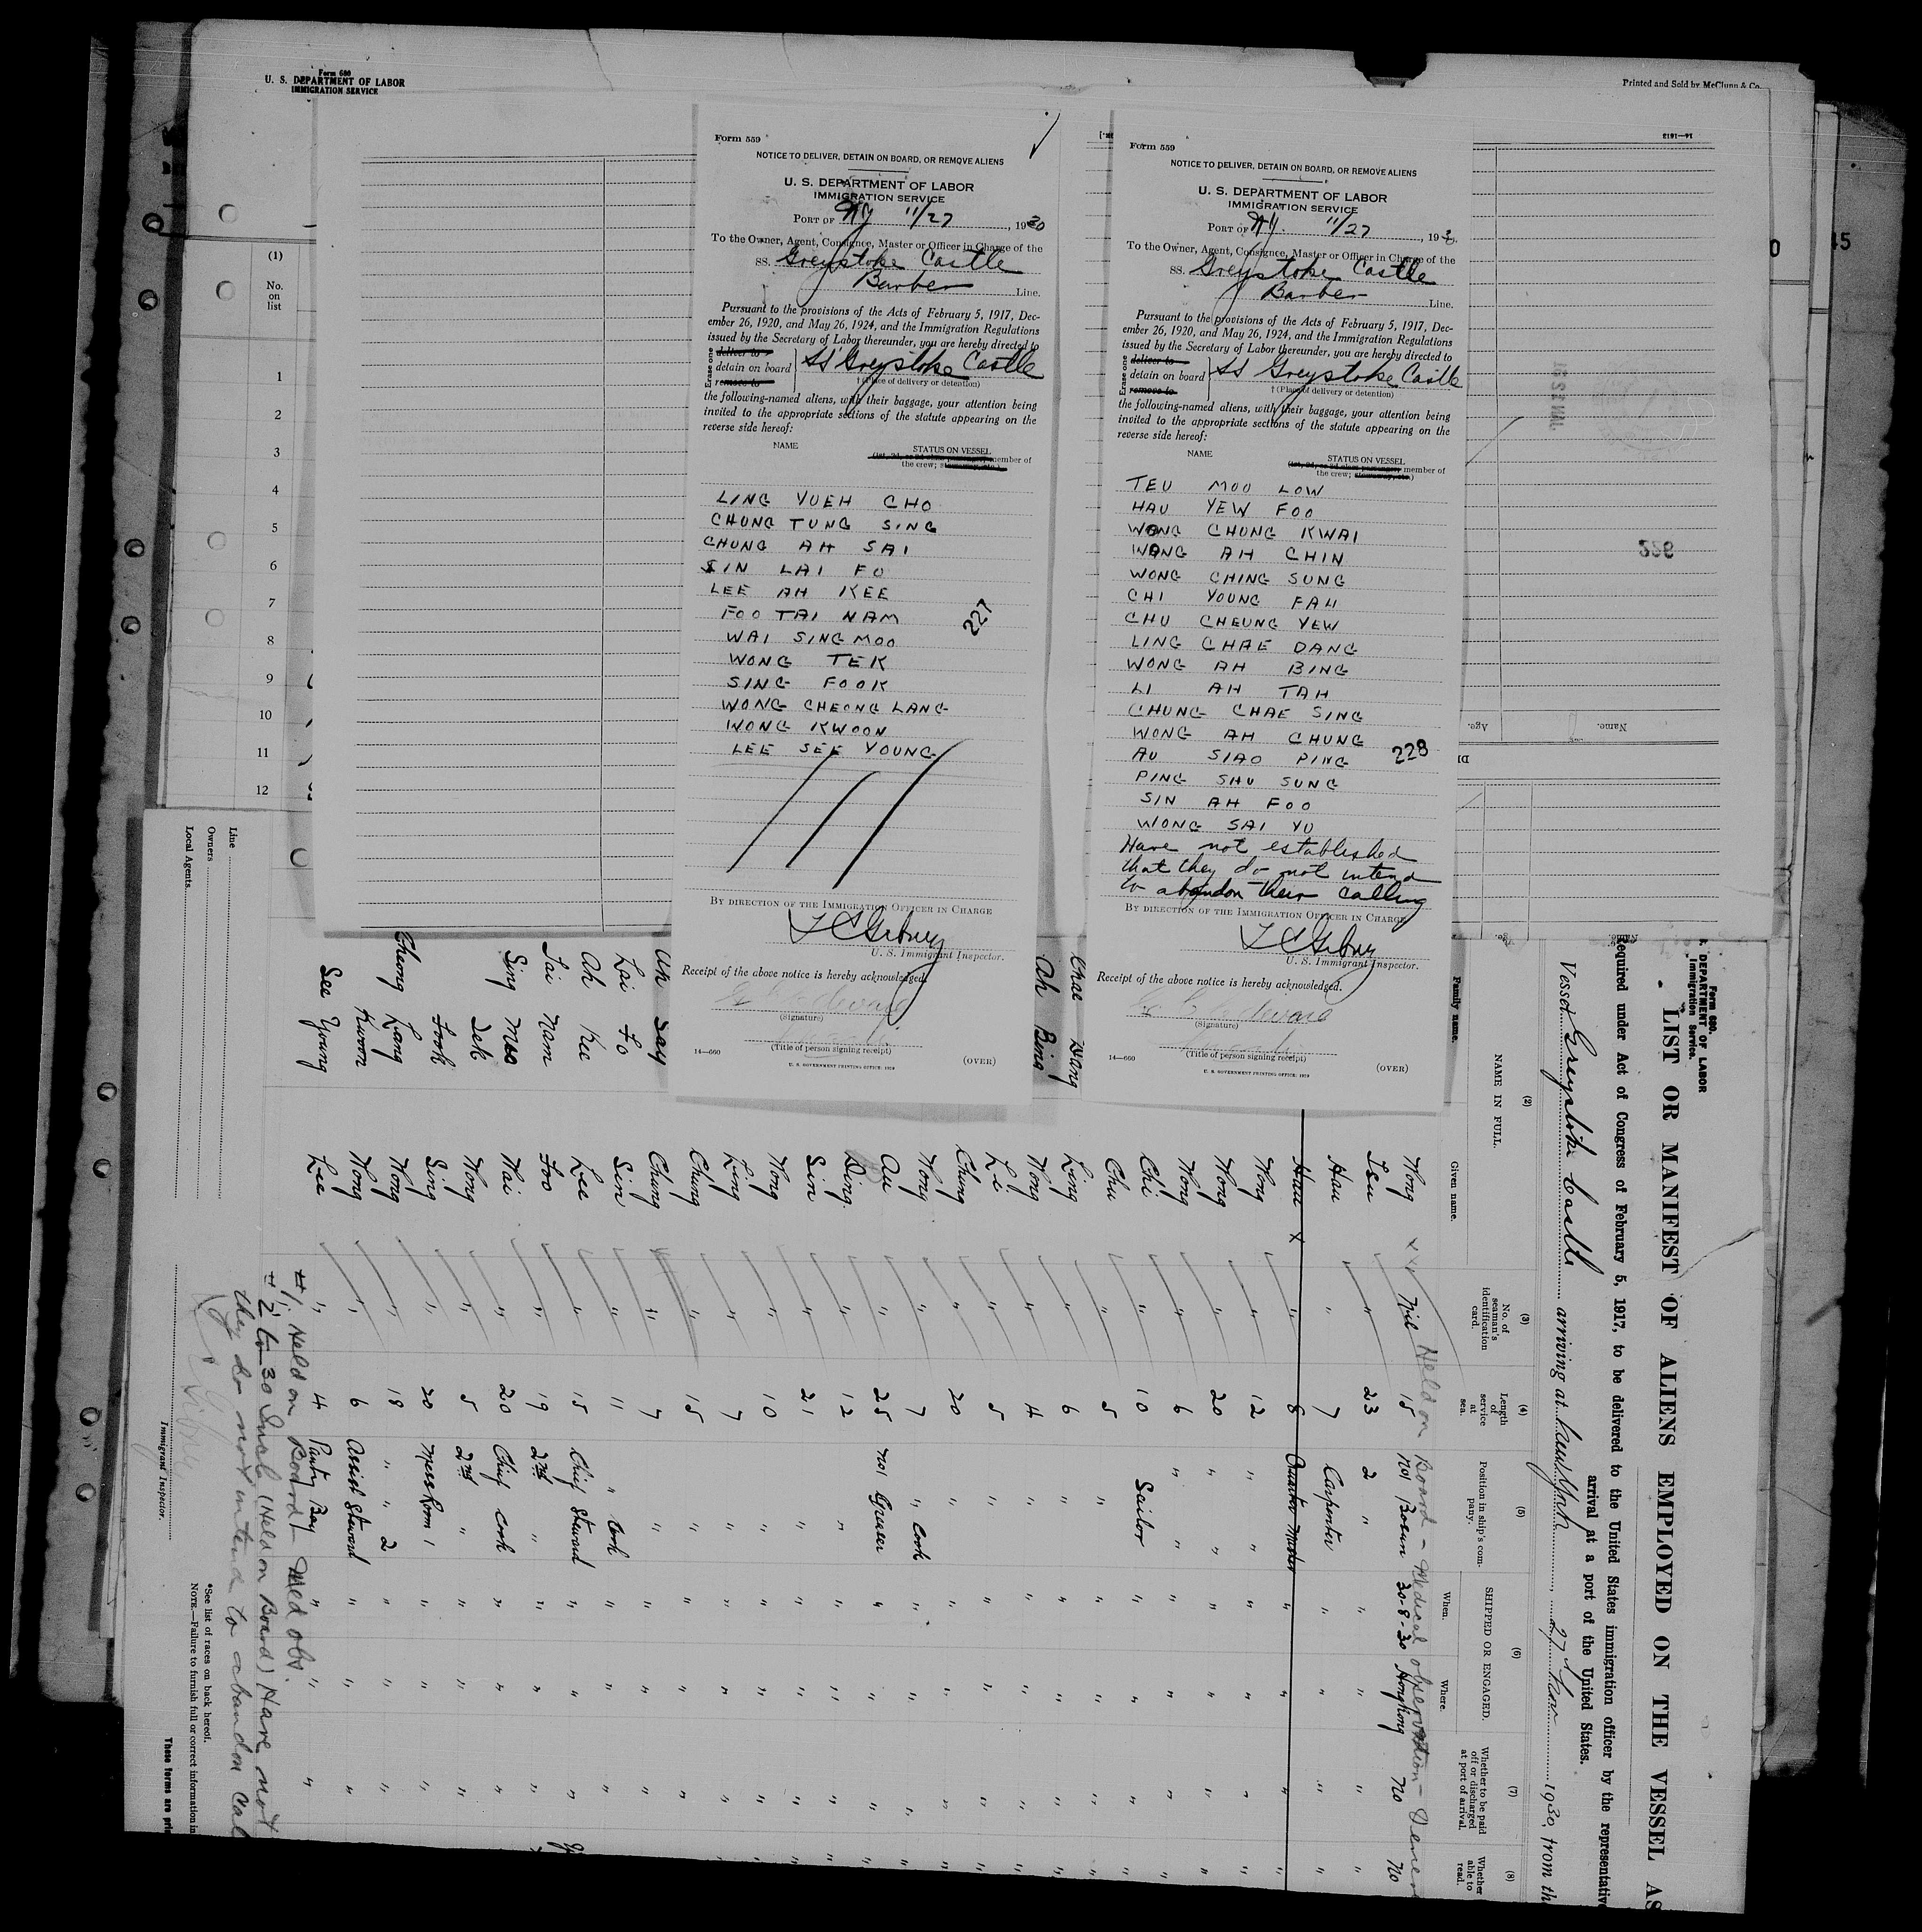 Form 680
U. S. DEPARTMENT OF LABOR
IMMIGRATION SERVICE
Printed and Sold by McClunn & Co.
(1)
No.
on
list
1
2
3
4
5
6
7
8
9
10
11
12
Form 559
NOTICE TO DELIVER, DETAIN ON BOARD, OR REMOVE ALIENS
U. S. DEPARTMENT OF LABOR
IMMIGRATION SERVICE
PORT OF NY 11/27, 1930
To the Owner, Agent, Consignee, Master or Officer in Charge of the
SS. Greystoke Castle
Barber Line.
Pursuant to the provisions of the Acts of February 5, 1917, Dec-
ember 26, 1920, and May 26, 1924, and the Immigration Regulations
issued by the Secretary of Labor thereunder, you are hereby directed to
Erase one
deliver to
detain on board
remove to
SS Greystoke Castle
† (Place of delivery or detention)
the following-named aliens, with their baggage, your attention being
invited to the appropriate sections of the statute appearing on the
reverse side hereof:
NAME STATUS ON VESSEL
(1st, 2d, or 3d class passenger, member of
the crew; stowaway, etc.)
LING YUEH CHO
CHUNG TUNG SING
CHUNG AH SAI
SIN LAI FO
LEE AH KEE
FOO TAI NAM
227
WAI SING MOO
WONG TEK
SING FOOK
WONG CHEONG LANG
WONG KWOON
LEE SEE YOUNG
BY DIRECTION OF THE IMMIGRATION OFFICER IN CHARGE
U. S. Immigrant Inspector.
Receipt of the above notice is hereby acknowledged.
(Signature)
(Title of person signing receipt)
14—660 (OVER)
U. S. GOVERNMENT PRINTING OFFICE: 1929
Form 559
NOTICE TO DELIVER, DETAIN ON BOARD, OR REMOVE ALIENS
U. S. DEPARTMENT OF LABOR
IMMIGRATION SERVICE
PORT OF NY. 11/27, 1930.
To the Owner, Agent, Consignee, Master or Officer in Charge of the
SS. Greystoke Castle
Barber Line.
Pursuant to the provisions of the Acts of February 5, 1917, Dec-
ember 26, 1920, and May 26, 1924, and the Immigration Regulations
issued by the Secretary of Labor thereunder, you are hereby directed to
Erase one
deliver to
detain on board
remove to
SS Greystoke Castle
† (Place of delivery or detention)
the following-named aliens, with their baggage, your attention being
invited to the appropriate sections of the statute appearing on the
reverse side hereof:
NAME STATUS ON VESSEL
(1st, 2d, or 3d class passenger, member of
the crew; stowaway, etc.)
TEU MOO LOW
HAU YEW FOO
WONG CHUNG KWAI
WONG AH CHIN
WONG CHING SUNG
CHI YOUNG FAH
CHU CHEUNG YEW
LING CHAE DANG
WONG AH BING
LI AH TAH
CHUNG CHAE SING
WONG AH CHUNG
228
AU SIAO PING
PING SHU SUNG
SIN AH FOO
WONG SAI YU
Have not established
that they do not intend
to abandon their calling
BY DIRECTION OF THE IMMIGRATION OFFICER IN CHARGE
U. S. Immigrant Inspector.
Receipt of the above notice is hereby acknowledged.
(Signature)
(Title of person signing receipt)
14—660 (OVER)
226
Name.
Age.
45
Form 680.
DEPARTMENT OF LABOR
Immigration Service.
LIST OR MANIFEST OF ALIENS EMPLOYED ON THE VESSEL AS
Required under Act of Congress of February 5, 1917, to be delivered to the United States immigration officer by the representative
arrival at a port of the United States.
Vessel Greystoke Castle arriving at New York 27th Nov 1930, from th
(2)
NAME IN FULL
Family name.
Given name.
(3)
No. of
seaman's
identification
card.
(4)
Length
of
service
at
sea.
(5)
Position in ship's com-
pany.
(6)
SHIPPED OR ENGAGED.
When.
Where.
(7)
Whether to be paid
off or discharged
at port of arrival.
(8)
Whether
able to
read.
Held on Board - Medical observation -
Wong Nil 15 No1 Bosun 30-8-30 Hongkong No No
Teu " 23 2 " " " " "
Hau " 7 Carpenter " " " "
Hau x " 8 Quarter Master " " " "
Wong " 12 " " " " "
Wong " 20 " " " " "
Wong " 6 " " " " "
Chi " 10 Sailor " " " "
Chu " 5 " " " " "
Chae Dang Ling " 6 " " " " "
Ah Bing Wong " 4 " " " " "
Li " 5 " " " " "
Chung " 20 " " " " "
Wong " 7 " Cook " " " "
Au " 25 No1 Greaser " " " "
Ping " 12 " " " " "
Sin " 21 " " " " "
Wong " 10 " " " " "
Ling " 7 " " " " "
Chung " 15 " " " " "
Ah Say Chung " 7 " " " " "
Lai Fo Sin " 11 " Cook " " " "
Ah Kee Lee " 15 Chief Steward " " " "
Tai Nam Foo " 19 2nd " " " " "
Sing Moo Wai " 20 Chief Cook " " " "
Tek Wong " 5 2nd " " " " "
Fook Sing " 20 Mess Room 1 " " " "
Cheong Lang Wong " 18 " " 2 " " " "
Kwoon Wong " 6 Assist Steward " " " "
See Young Lee " 4 Pantry Boy " " " "
#1. Held on Board - Med obs.
#2 to 30 Incl (Held on Board) Have not
they do not intend to abandon cal
Line
Owners
Local Agents
Immigrant Inspector.
*See list of races on back hereof.
NOTE.—Failure to furnish full or correct information in
These forms are pri